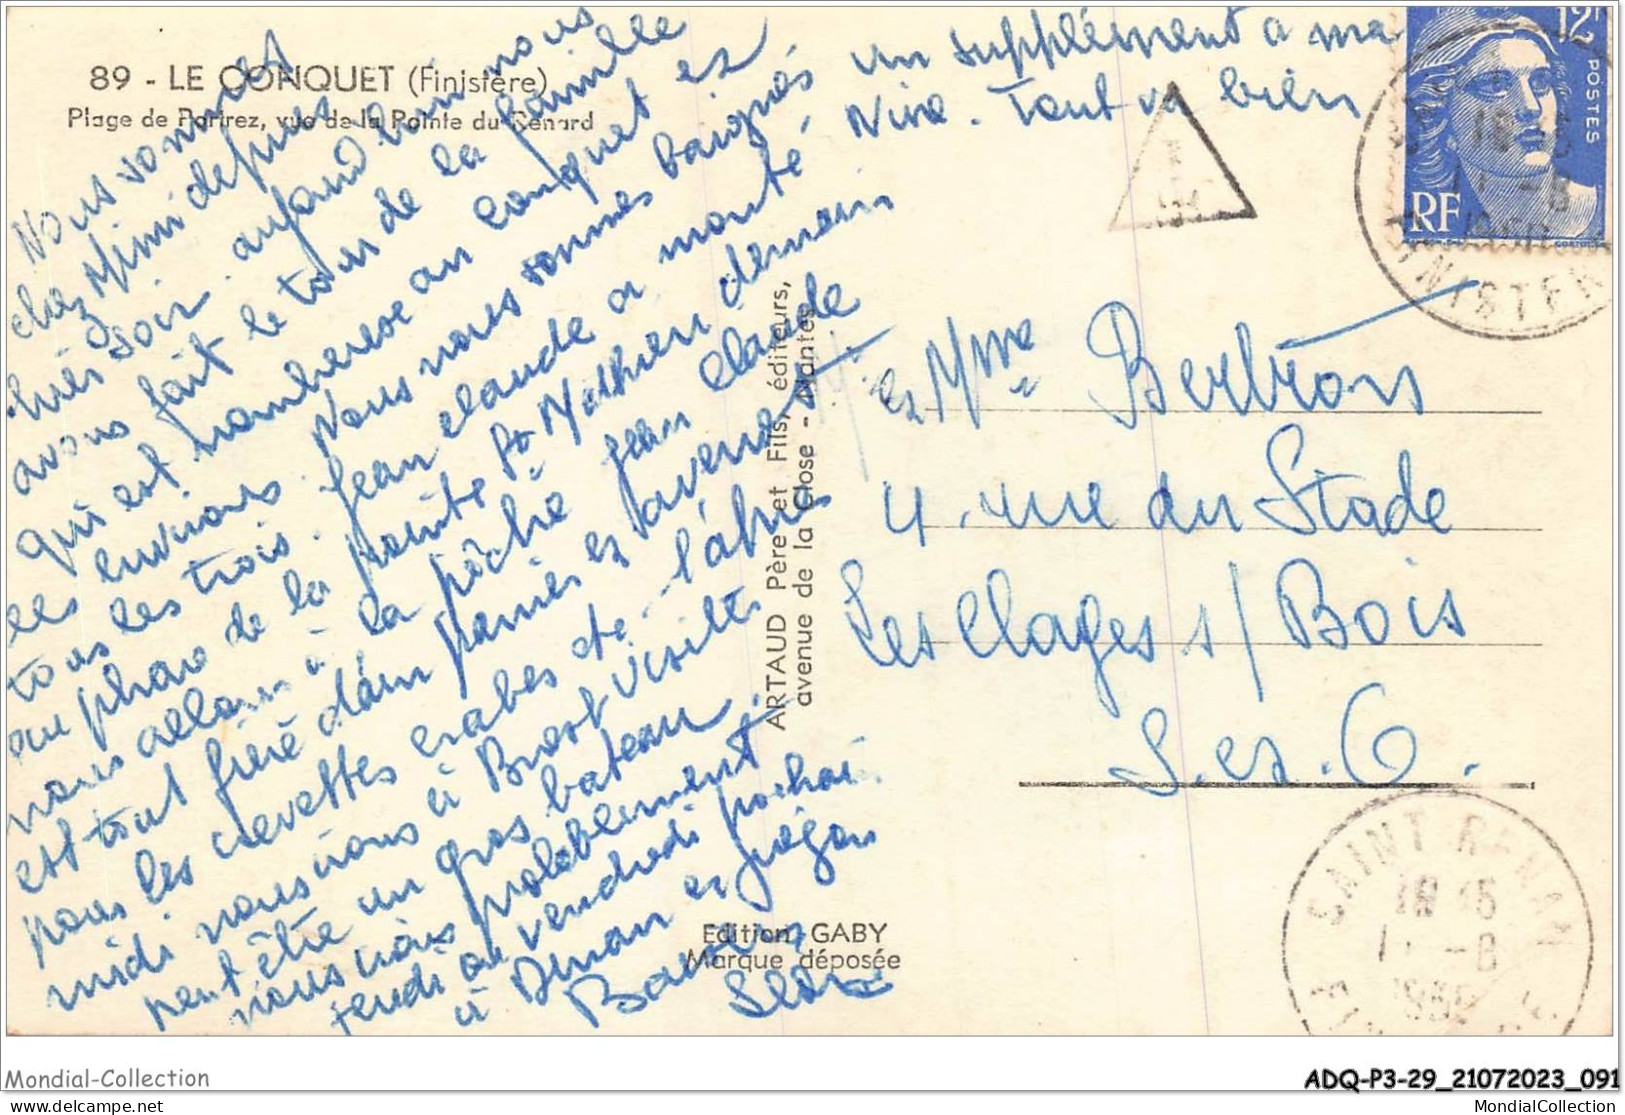 89 - LE CONQUET (Finistère)
Plage de Portrez, vue de la Pointe du Renard
Nous sommes
chez Mimi depuis
hier soir. ayant bien nous
avons fait le tour de la famille
qui est nombreuse au Conquet et
les environs. Nous nous sommes baignés
tous les trois. Jean Claude a monté
au phare de la pointe St Mathieu demain
nous allons à la pêche Jean Claude
est tout fier
pour les crevettes crabes etc. l'après
midi nous irons à Brest visiter
peut être un gros bateau.
nous irons probablement
jeudi ou vendredi prochain
à Dinan et Frégon
Baisers
un supplément a ma
Nine. Tout va bien
ARTAUD Père et Fils, éditeurs,
avenue de la Close - Nantes
Edition GABY
Marque déposée
12F
POSTES
RF
FINISTER
Mme Bertron
4 rue du Stade
Les Clayes s/ Bois
S. et. O.
SAINT RENAN
18 15
1 -8
195
Mondial-Collection
ADQ-P3-29_21072023_091
delcampe.net
MondialCollection